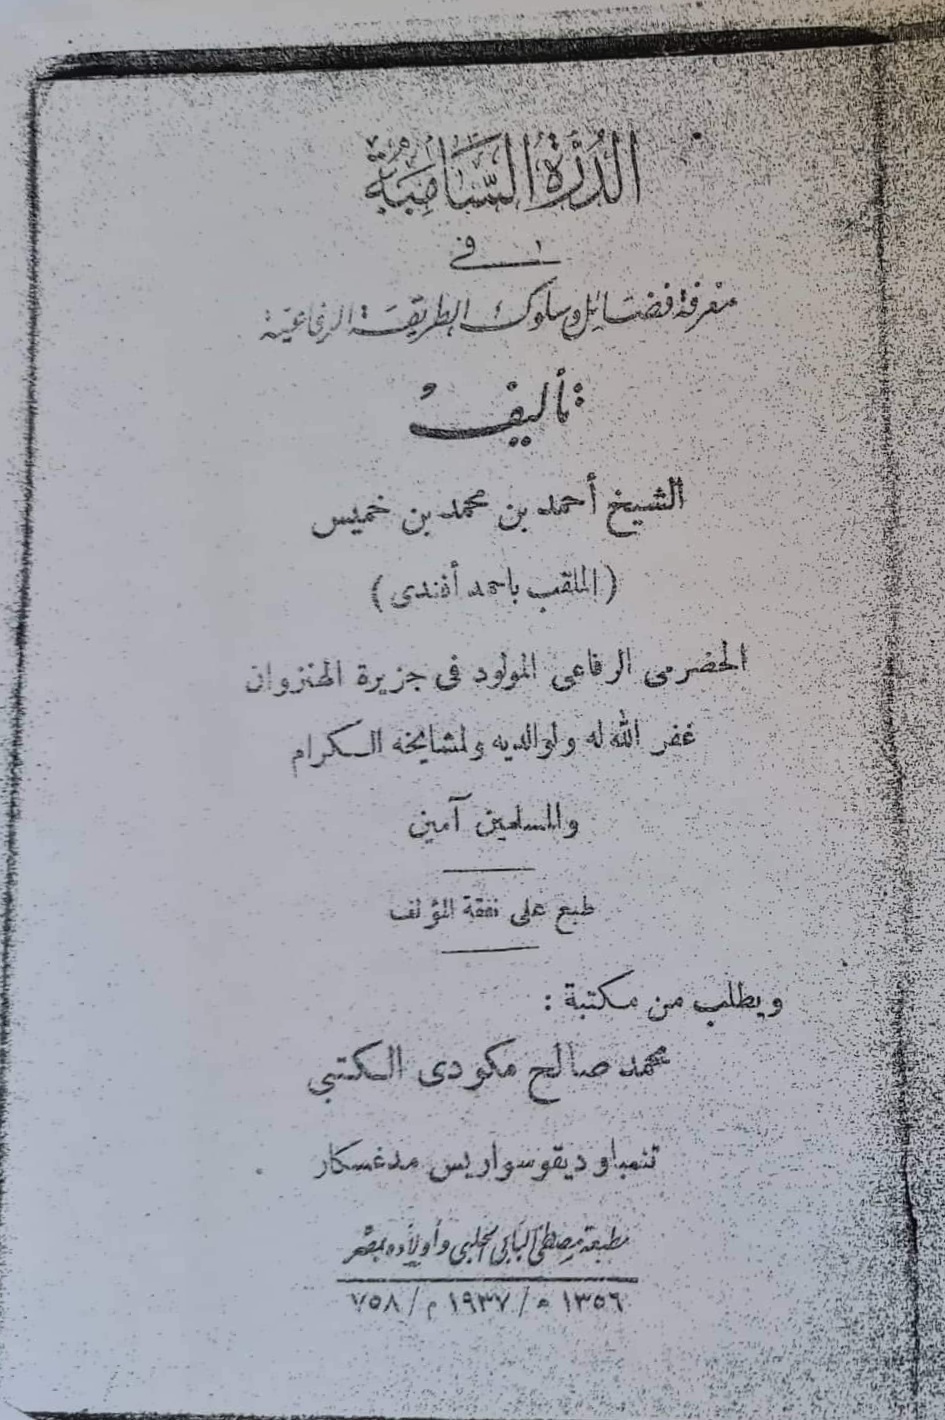 الدُّرَّةُ السَّامِيَةُ
في
معرفة فضائل وسلوك الطريقة الرفاعية
تأليف
الشيخ أحمد بن محمد بن خميس
(الملقب باحمد أفندى)
الحضرمى الرفاعى المولود فى جزيرة الهنزوان
غفر الله له ولوالديه ولمشايخه الكرام
والمسلمين آمين
طبع على نفقة المؤلف
ويطلب من مكتبة :
محمد صالح مكودى الكتبي
تنمباو ديقوسواريس مدغسكار
مطبعة مصطفى البابى الحلبى وأولاده بمصر
١٣٥٦ ه / ١٩٣٧ م / ٧٥٨